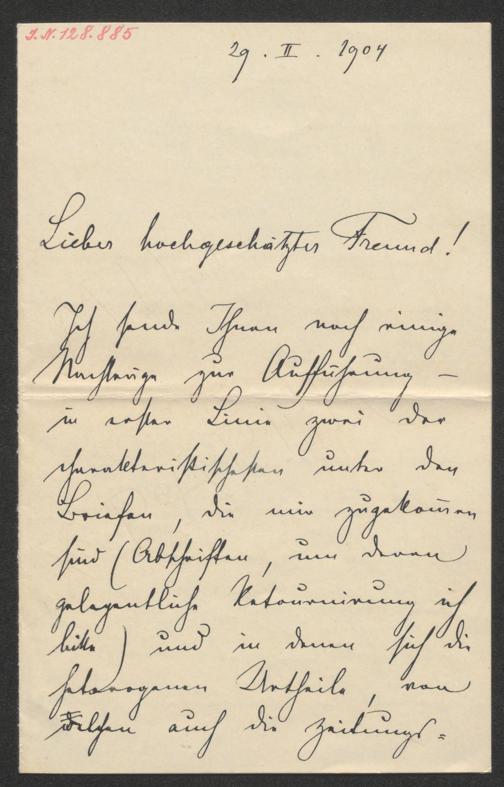 I.N.128.885
29. II. 1904
Lieber hochgeschätzter Freund!
Ich sende Ihnen noch einige
Nachträge zur Aufführung —
in erster Linie zwei der
charakteristischesten unter den
Briefen, die mir zugekom̅en
sind (Abschriften, um deren
gelegentliche Retournirung ich
bitte) und in denen sich die
heterogenen Urtheile, von
welchen auch die Zeitungs=